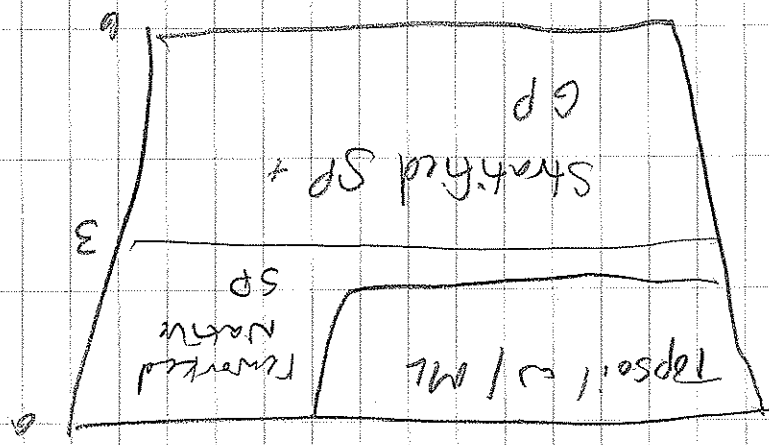 0
Topsoil w/ ML
reworked
Native
SP
3
Stratified SP +
GP
6